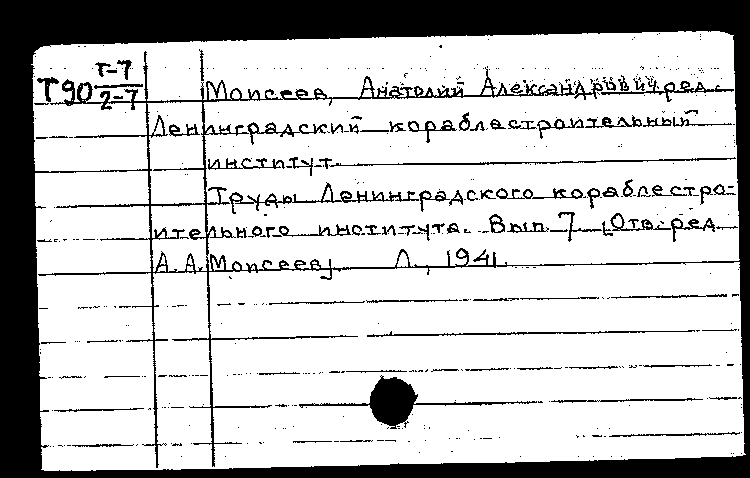 Т90 Т-7
2-7
Моисеев, Анатолий Александрович ред.
Ленинградский кораблестроительный
институт.
Труды Ленинградского кораблестро-
ительного института. Вып. 7. [Отв. ред.
А.А. Моисеев]. Л., 1941.